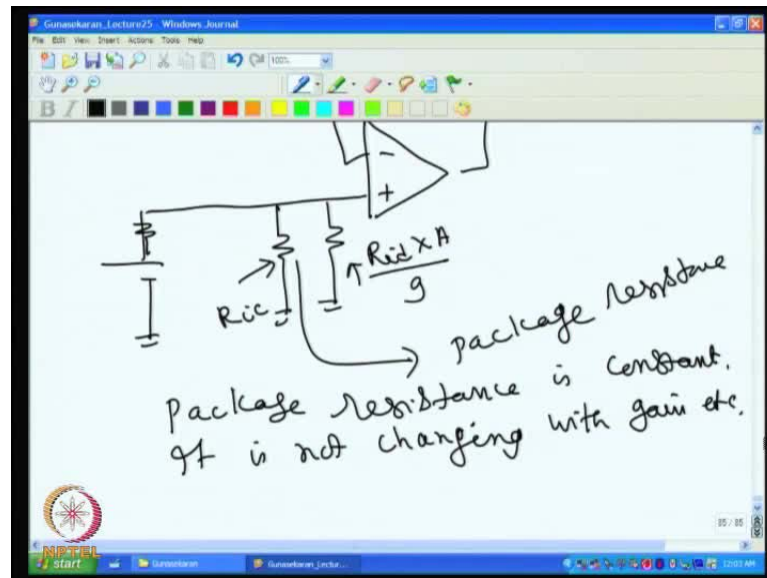 Gunasekaran_Lecture25 - Windows Journal
File Edit View Insert Actions Tools Help
100%
B I
-
+
Ric
Rid x A
g
package resistance
package resistance is constant.
It is not changing with gain etc.
85 / 85
NPTEL
start Gunasekaran Gunasekaran_Lectur... 12:03 AM